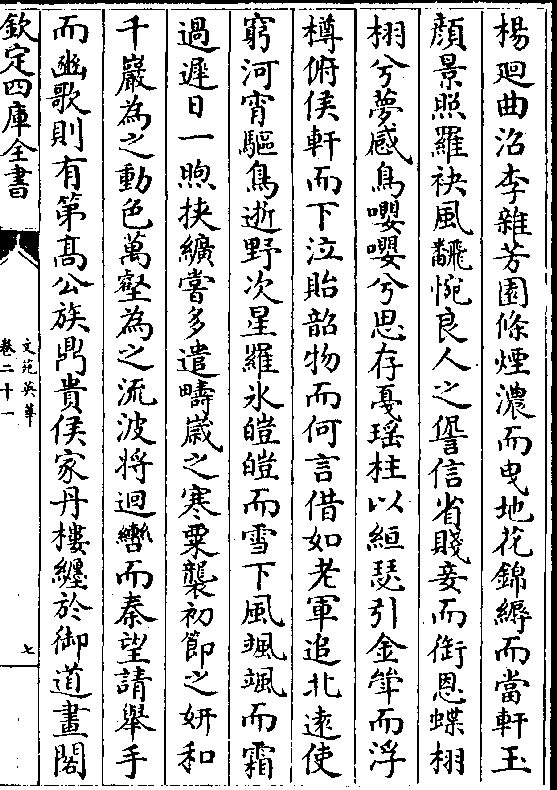 楊廻曲沼李雜芳園條煙濃而曳地花錦縟而當軒玉
顔景照羅袂風飜惋良人之徽信省賤妾而銜恩蝶栩
栩兮夢感鳥嚶嚶兮思存戞瑶柱以絙瑟引金斝而浮
樽俯侯軒而下泣貽韶物而何言借如老軍追北逺使
窮河宵驅鳥逝野次星羅氷皚皚而雪下風颯颯而霜
過遲日一煦挾纊嘗多遣疇嵗之寒粟襲初節之妍和
千巖為之動色萬壑為之流波將迴轡而秦望請舉手
而幽歌則有第髙公族鼎貴侯家丹樓纒於御道畫閣
欽定四庫全書
文苑英華
卷二十一
七